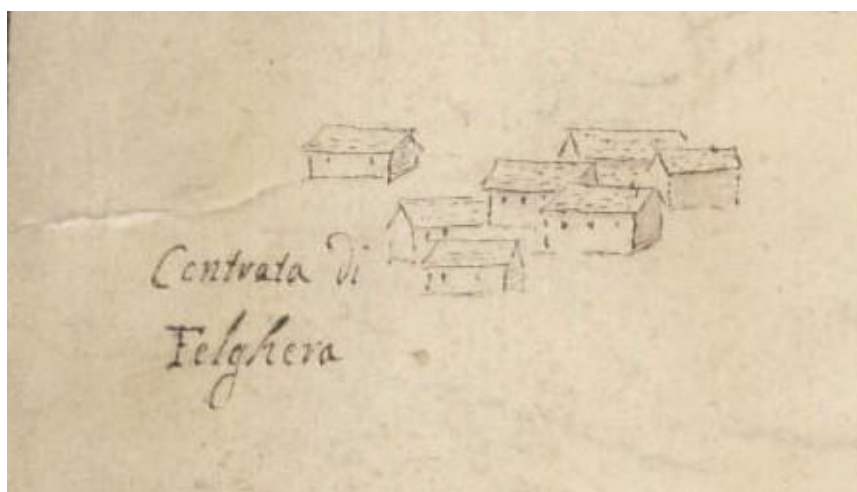 Contrata di
Felghera